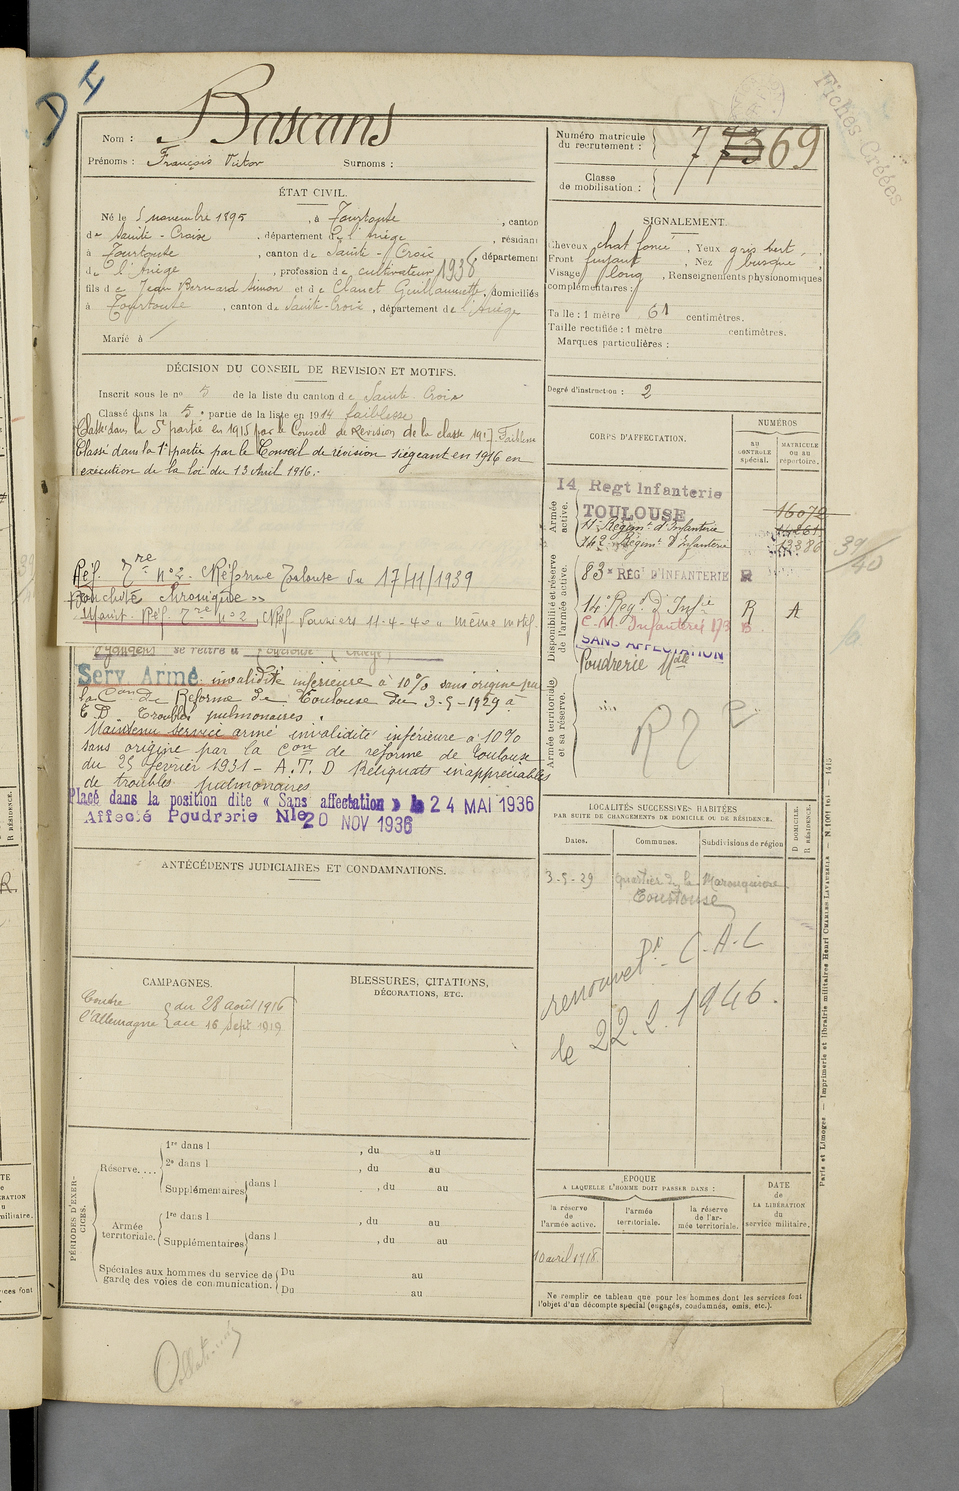 D 4
Fiches Créées
Nom : Bascans
Prénoms : François Victor Surnoms :
Numéro matricule
du recrutement :
Classe
de mobilisation :
ÉTAT CIVIL.
Né le 5 novembre 1895, à Tourtouse, canton
de Sainte-Croix, département de l'Ariège, résidant
à Tourtouse, canton de Sainte-Croix, département
de l'Ariège, profession de cultivateur 1938
fils de Jean Bernard Simon et de Clanet Guillaumette, domiciliés
à Tourtouse, canton de Sainte-Croix, département de l'Ariège
Marié à
SIGNALEMENT.
Cheveux chat foncé, Yeux gris vert,
Front fuyant, Nez busqué,
Visage long, Renseignements physionomiques
complémentaires :
Taille : 1 mètre 61 centimètres.
Taille rectifiée : 1 mètre centimètres.
Marques particulières :
Degré d'instruction : 2
DÉCISION DU CONSEIL DE REVISION ET MOTIFS.
Inscrit sous le no 5 de la liste du canton de Sainte Croix
Classé dans la 5e partie de la liste en 1914 faiblesse
Classé dans la 5e partie en 1915 par le Conseil de Révision de la classe 1917. Faiblesse
Classé dans la 1e partie par le Conseil de révision siégeant en 1916 en
exécution de la loi du 13 Avril 1916.
Réf. 7re no 2. CRéforme Toulouse du 17/11/1939
Bronchite chronique »»
Maint. Réf. 7re no 2, CRéf Pamiers 11-4-40 " même motif
se retire à Tourtouse (Ariège)
Serv. Armé. invalidité inférieure à 10% sans origine par
la Con de Réforme de Toulouse du 3-5-1929 à
T.D. Troubles pulmonaires.
Maintenu service armé invalidité inférieure à 10%
sans origine par la Con de réforme de Toulouse
du 25 février 1931 - A.T.D Reliquats inappréciables
de troubles pulmonaires
Placé dans la position dite « Sans affectation » le 24 MAI 1936
Affecté Poudrerie Nle 20 NOV 1936
CORPS D'AFFECTATION.
NUMÉROS
au
CONTROLE
spécial.
MATRICULE
ou au
répertoire.
Armée
active.
14 Regt Infanterie
TOULOUSE
11e Régimt d'Infanterie
142 Régimt d'Infanterie
16072
14261
13386
39/40
Disponibilité et réserve
de l'armée active.
83e REG D'INFANTERIE R
14e Regt d'Infie R A
C.M. Infanterie 173 B.
SANS AFFECTATION
Poudrerie Nale
Armée territoriale
et sa réserve.
R 7 2
LOCALITÉS SUCCESSIVES HABITÉES
PAR SUITE DE CHANGEMENTS DE DOMICILE OU DE RÉSIDENCE.
Dates.
Communes.
Subdivisions de région
D DOMICILE.
R RÉSIDENCE.
3-5-29 Quartier de la
Tourtouse
renouvelt C.A.C
le 22.2.1946.
ANTÉCÉDENTS JUDICIAIRES ET CONDAMNATIONS.
CAMPAGNES.
Contre
l'Allemagne
du 28 août 1916
au 16 Sept 1919
BLESSURES, CITATIONS,
DÉCORATIONS, ETC.
PÉRIODES D'EXER-
CICES.
Réserve....
1re dans l , du au
2e dans l , du au
Supplémentaires dans l , du au
Armée
territoriale.
1re dans l , du au
Supplémentaires dans l , du au
Spéciales aux hommes du service de
garde des voies de communication.
Du au
Du au
ÉPOQUE
A LAQUELLE L'HOMME DOIT PASSER DANS :
la réserve
de
l'armée active.
l'armée
territoriale.
la réserve
de l'ar-
mée territoriale.
DATE
de
LA LIBÉRATION
du
service militaire.
10 avril 1918
Ne remplir ce tableau que pour les hommes dont les services font
l'objet d'un décompte spécial (engagés, condamnés, omis, etc.).
Paris et Limoges — Imprimerie et librairie militaires Henri CHARLES-LAVAUZELLE